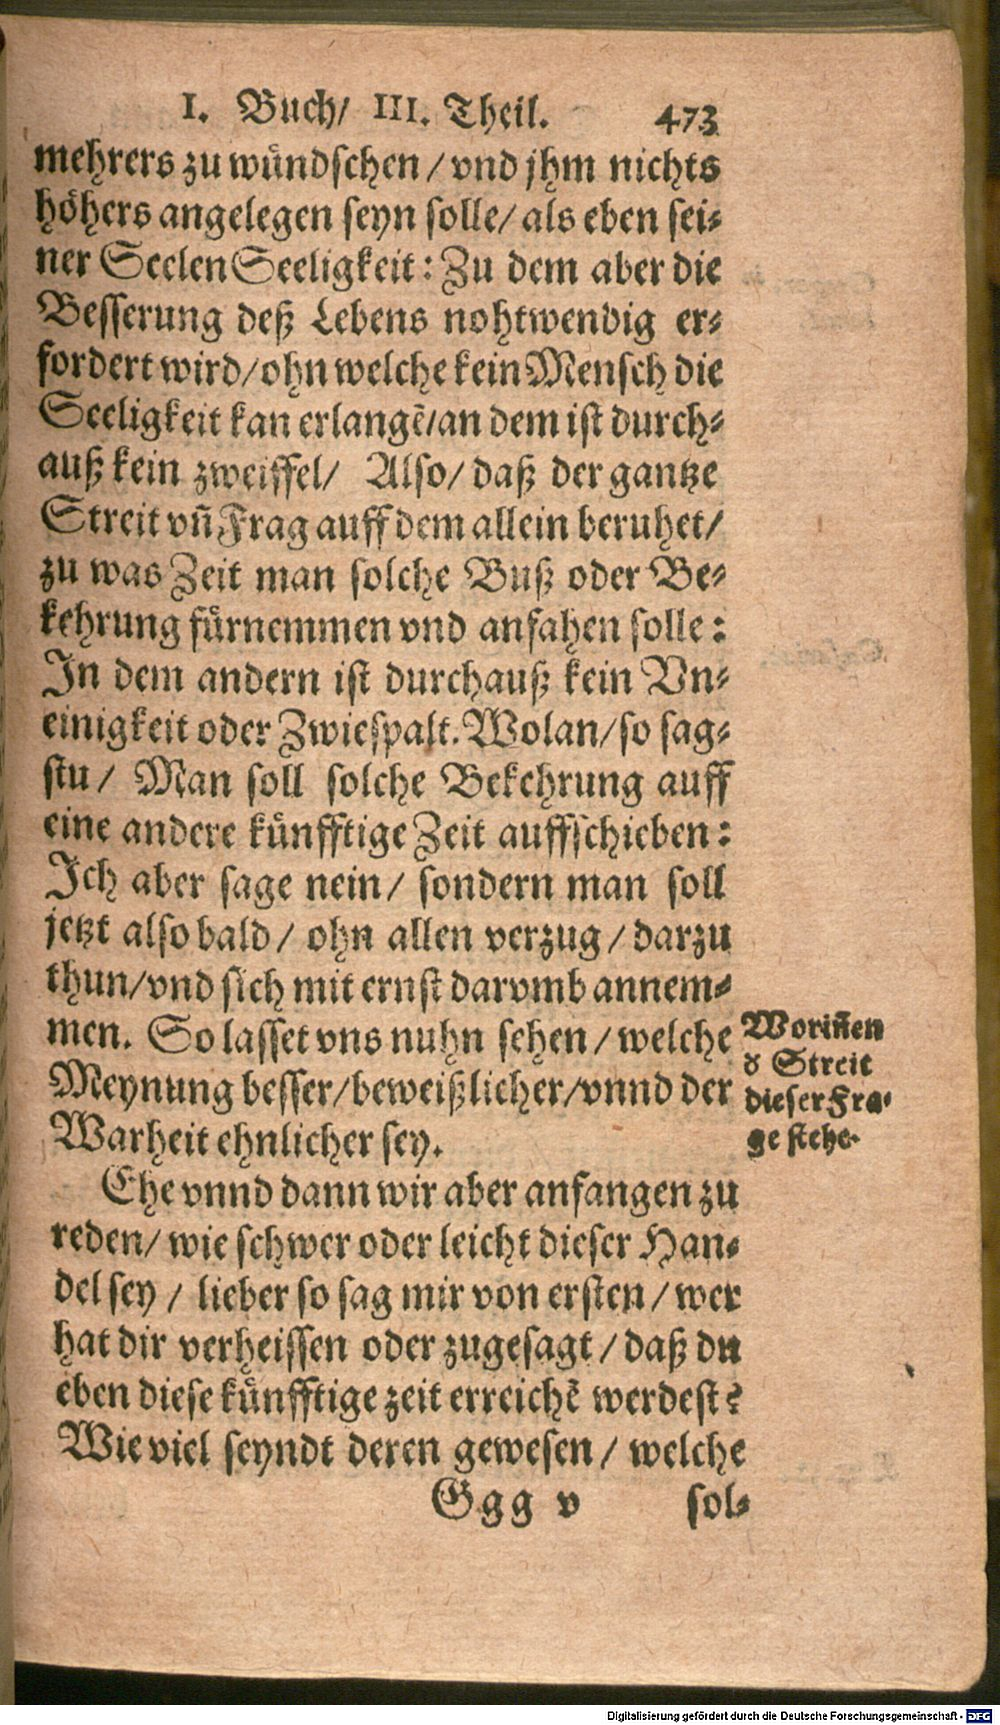 I. Buch/ III. Theil. 473
mehrers zu wündschen/ vnd jhm nichts
höhers angelegen seyn solle/ als eben sei-
ner Seelen Seeligkeit: Zu dem aber die
Besserung deß Lebens nohtwendig er-
fordert wird/ ohn welche kein Mensch die
Seeligkeit kan erlangẽ/ an dem ist durch-
auß kein zweiffel/ Also/ daß der gantze
Streit vñ Frag auff dem allein beruhet/
zu was Zeit man solche Buß oder Be-
kehrung fürnemmen vnd anfahen solle:
In dem andern ist durchauß kein Vn-
einigkeit oder Zwiespalt. Wolan/ so sag-
stu/ Man soll solche Bekehrung auff
eine andere künfftige Zeit auffschieben:
Ich aber sage nein/ sondern man soll
jetzt also bald/ ohn allen verzug/ darzu
thun/ vnd sich mit ernst darvmb annem-
men. So lasset vns nuhn sehen/ welche
Meynung besser/ beweißlicher/ vnnd der
Warheit ehnlicher sey.
Woriñen
d Streit
dieser Fra-
ge stehe.
Ehe vnnd dann wir aber anfangen zu
reden/ wie schwer oder leicht dieser Han-
del sey/ lieber so sag mir von ersten/ wer
hat dir verheissen oder zugesagt/ daß du
eben diese künfftige zeit erreichẽ werdest?
Wie viel seyndt deren gewesen/ welche
Ggg v sol-
Digitalisierung gefördert durch die Deutsche Forschungsgemeinschaft - DFG